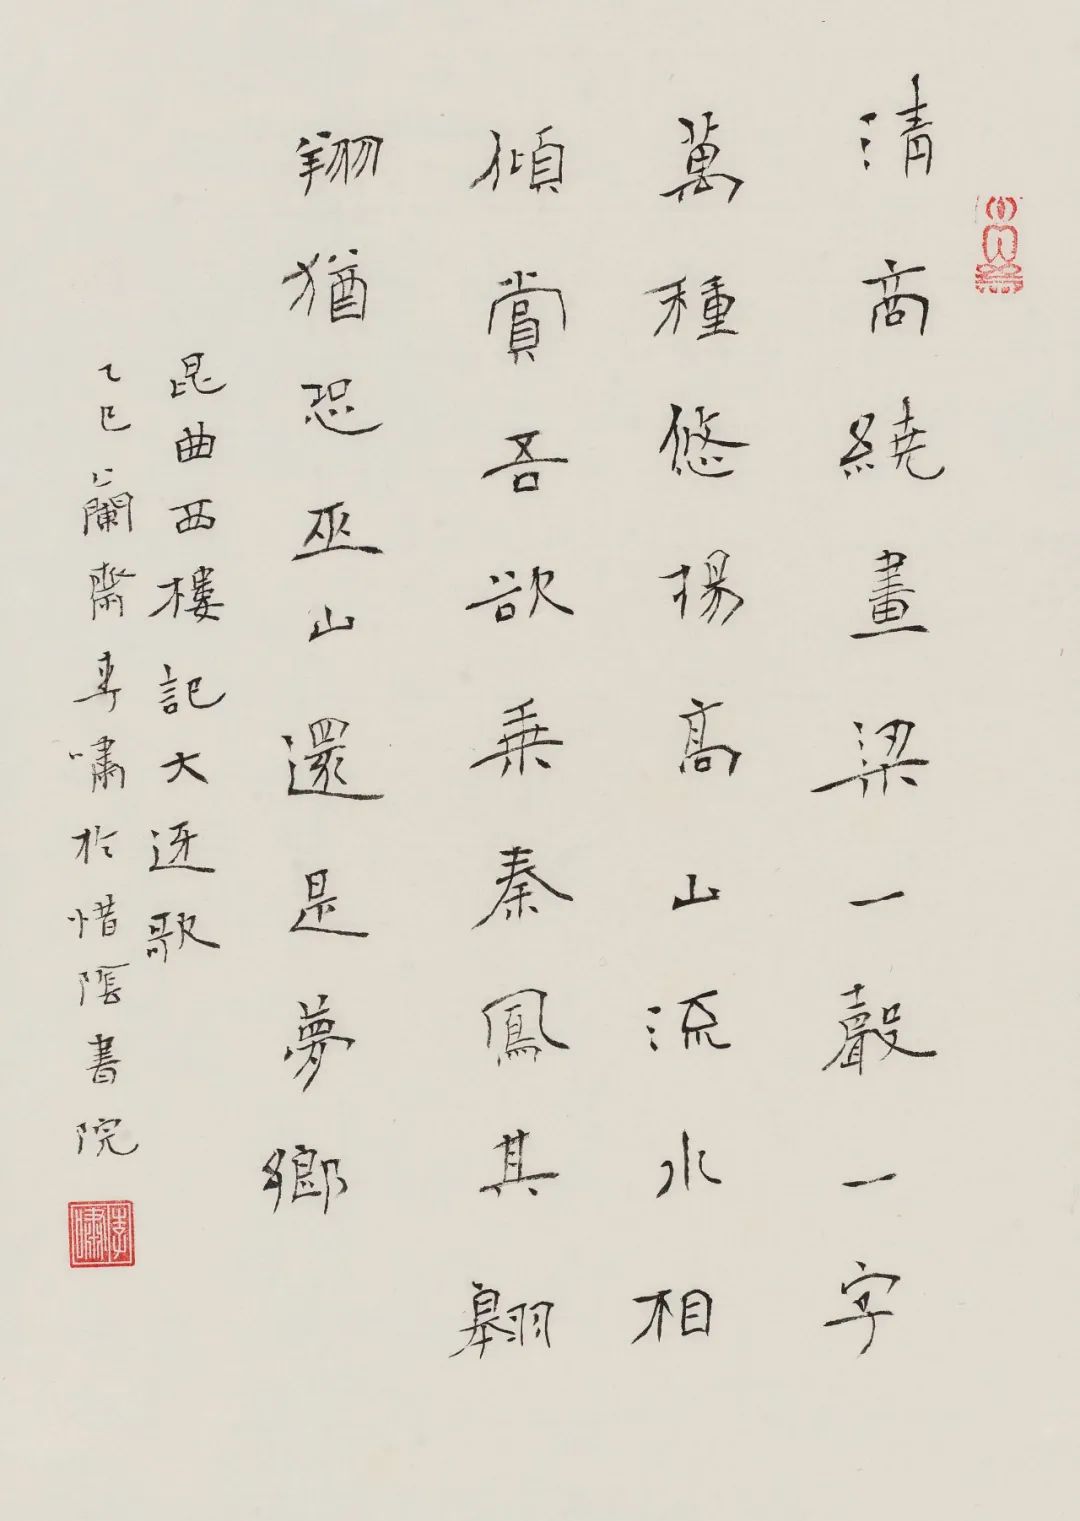 清商繞畫梁一聲一字
萬種悠揚高山流水相
傾賞吾欲乗秦鳳共翱
翔猶恐巫山還是夢鄉
昆曲西樓記大迓歌
乙巳蘭齋李嘯於惜陰書院
李嘯